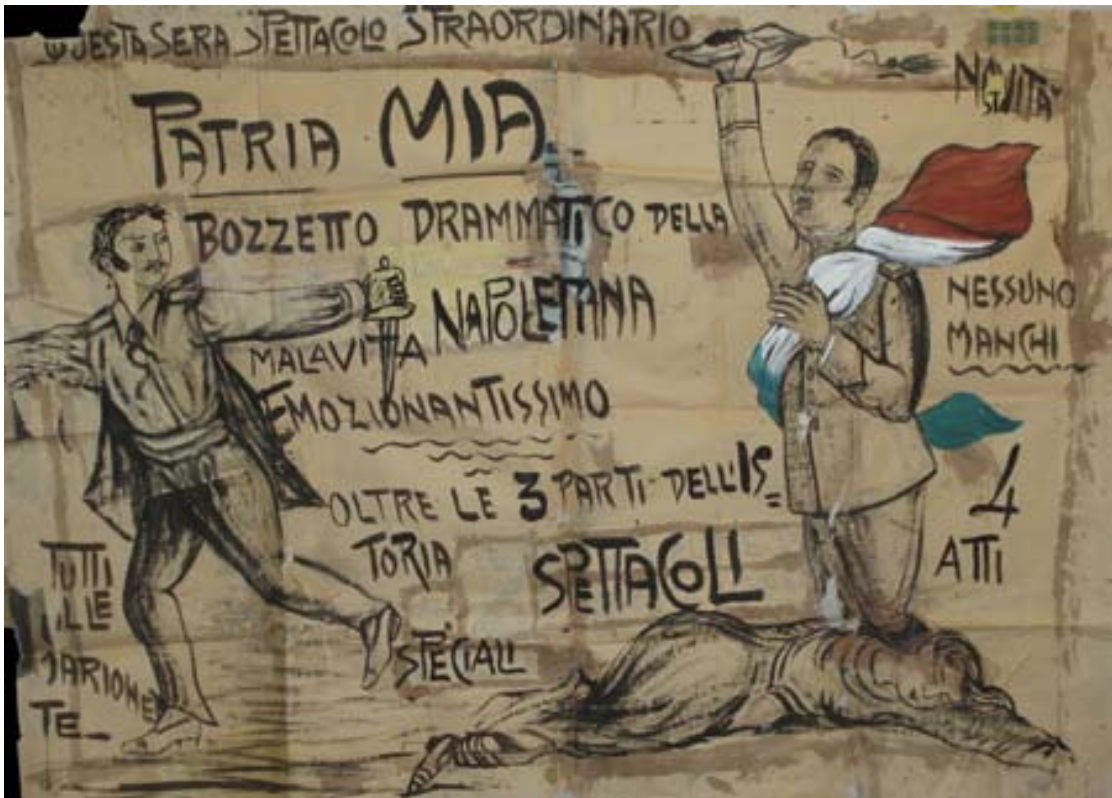 QUESTA SERA SPETTACOLO STRAORDINARIO
NOVITA
PATRIA MIA
BOZZETTO DRAMMATICO DELLA
MALAVITA NAPOLETANA
EMOZIONANTISSIMO
NESSUNO
MANCHI
OLTRE LE 3 PARTI DELL'IS=
TORIA
SPETTACOLI
SPECIALI
4
ATTI
TUTTI
MARIONET
TE